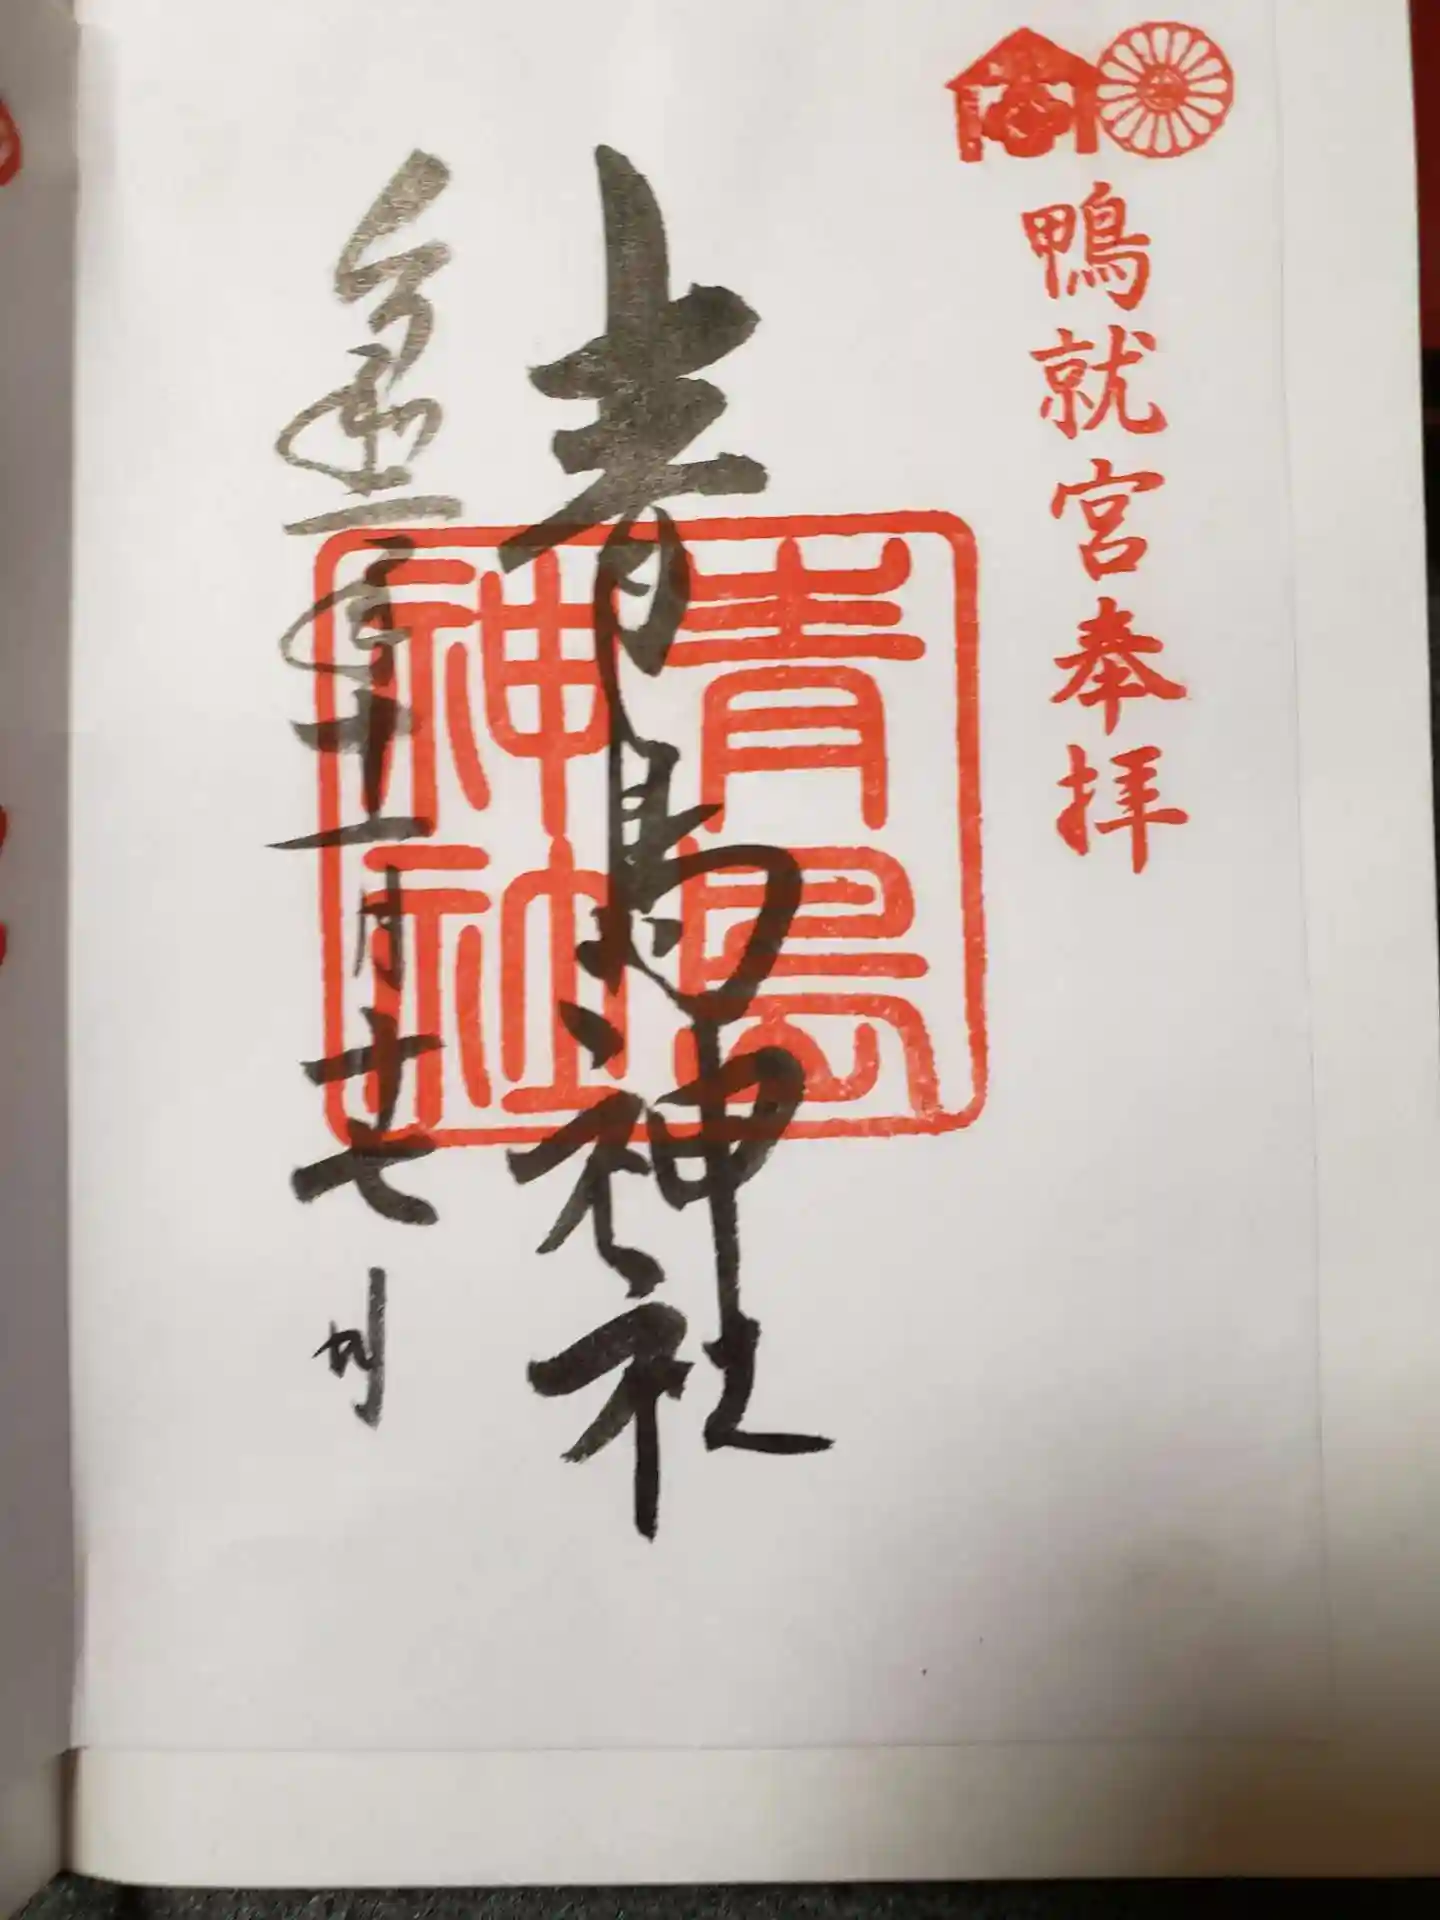 鴨就宮奉拝
青島神社
青島神社
令和二年十一月廿七日